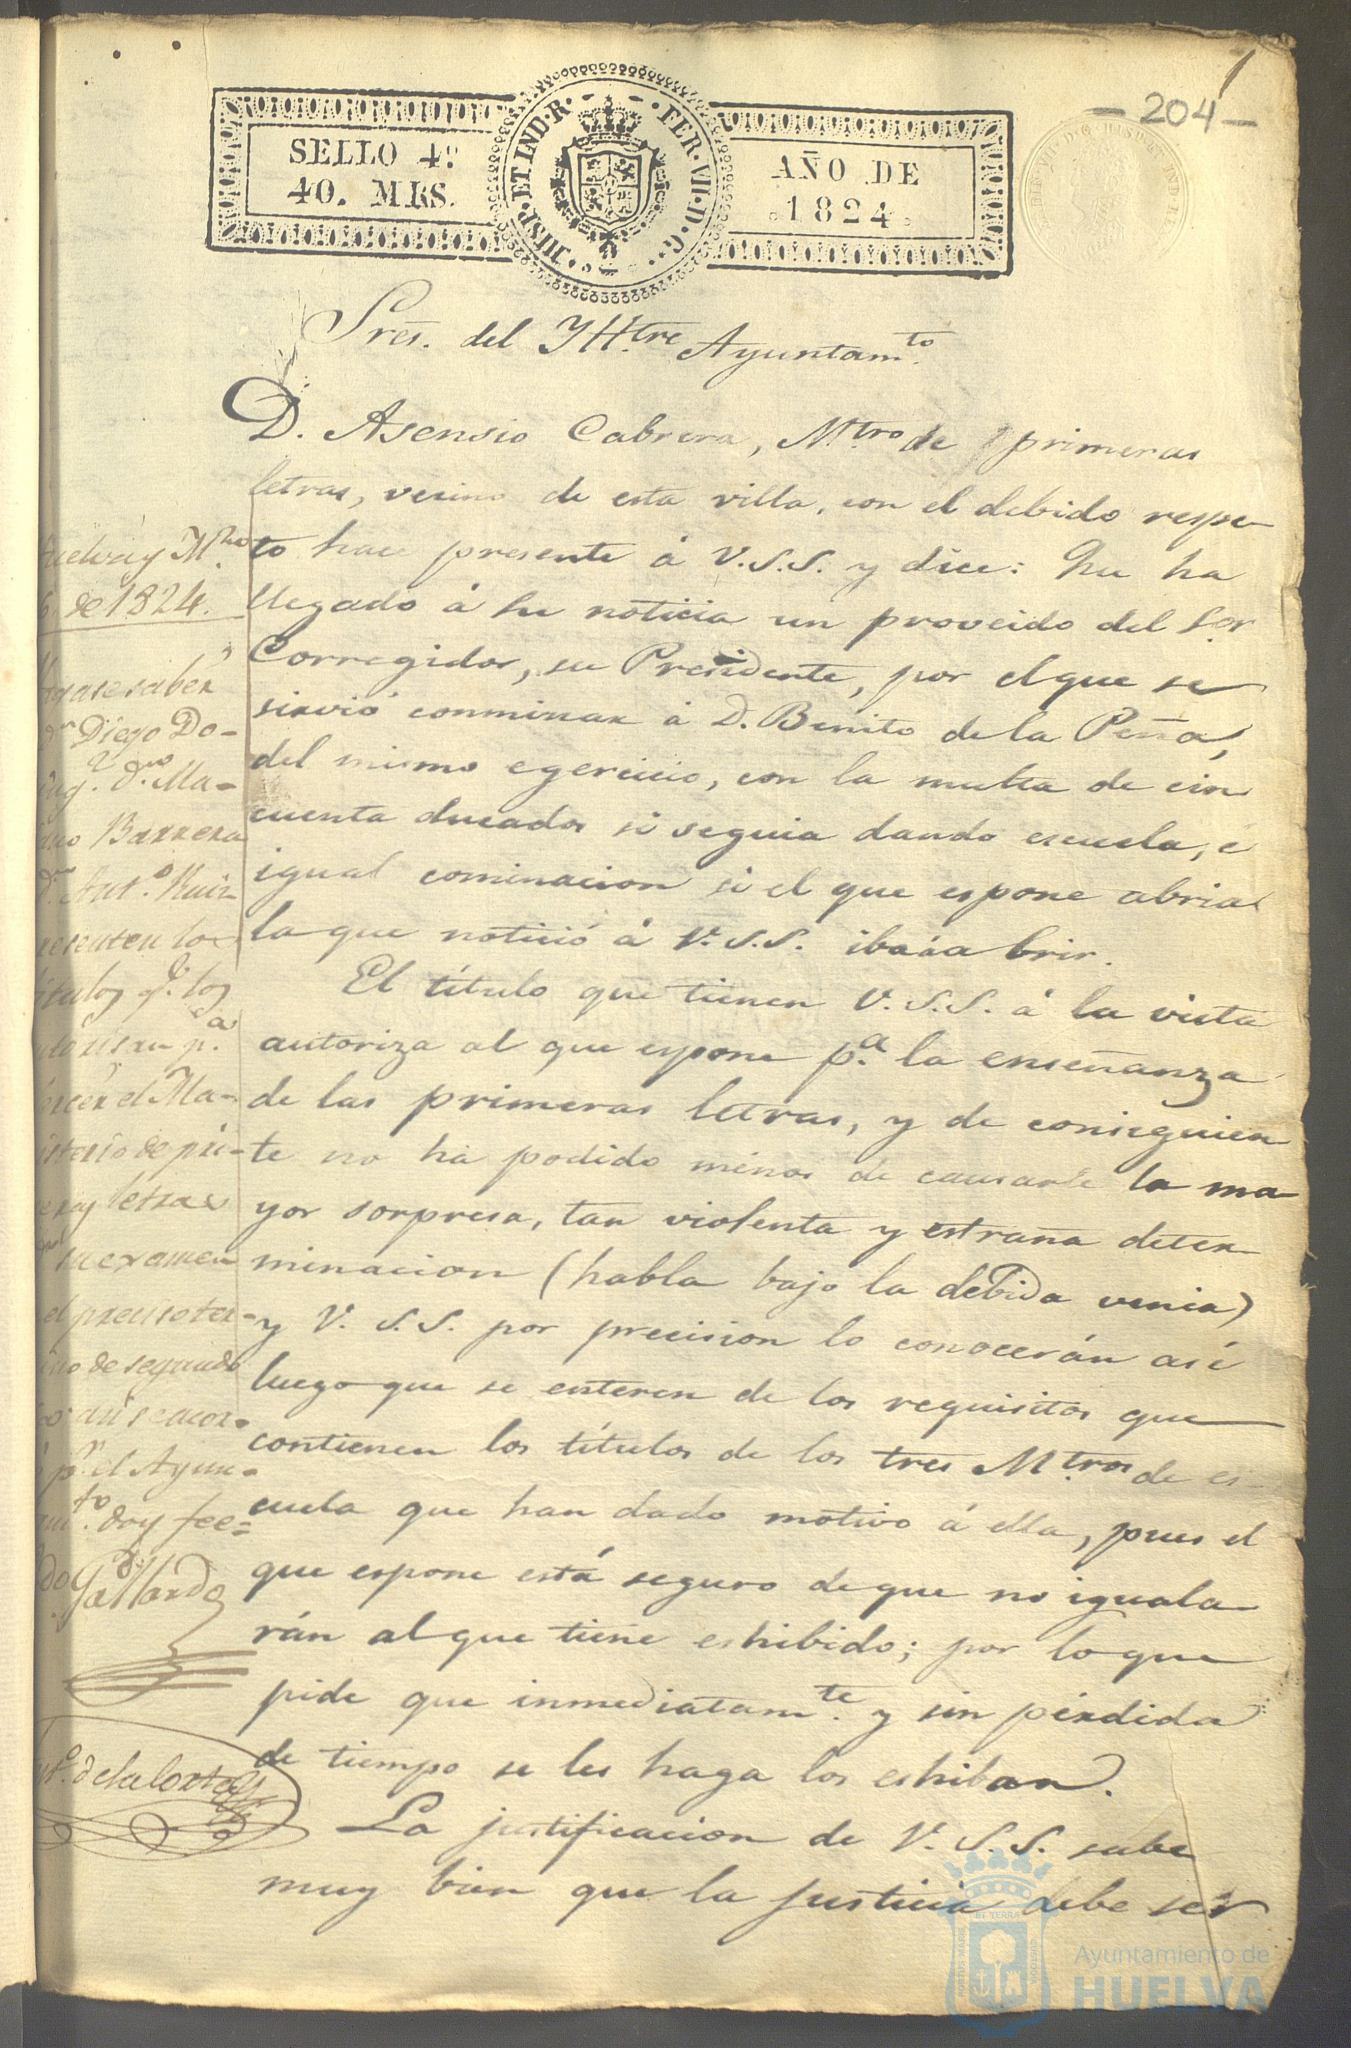 - 204 -
1
SELLO 4º
40. MRS.
HISP. ET IND. R. FER. VII. D. G.
AÑO DE
1824
Sres. del Yltre Ayuntamto.
D. Asensio Cabrera, Mtro de primeras
letras, vecino de esta villa, con el debido respe-
to hace presente á V.S.S. y dice: Que ha
llegado á su noticia un proveido del Sor
Corregidor, su Presidente, por el que se
sirvió conminar á D. Benito de la Peña,
del mismo egercicio, con la multa de cin
cuenta ducados si seguia dando escuela, é
igual cominacion si el que espone abria
la que notició á V.S.S. iba á abrir.
El título que tienen V.S.S. á la vista
autoriza al que espone pa. la enseñanza
de las primeras letras, y de consiguien
te no ha podido menos de causarle la ma
yor sorpresa, tan violenta y estraña deter-
minacion (habla bajo la debida venia)
y V.S.S. por precision lo conocerán asi
luego que se enteren de los requisitos que
contienen los títulos de los tres Mtros de es-
cuela que han dado motivo á ella, pues el
que espone está seguro de que no iguala
rán al que tiene eshibido; por lo que
pide que inmediatamte. y sin pérdida
de tiempo se les haga los eshiban.
La justificacion de V.S.S. sabe
muy bien que la justicia debe ser
Huelva y Mzo
6. de 1824.
Hagase saber
Dn Diego Do-
ming.z Dn. Ma-
Barrera
Dn. Anto. Ruiz
presenten los
titulos q.e los
autorisan pa.
egercer el Ma-
gisterio de pri-
meras letras
su examen
el preciso ter-
mino de segundo
asi se acor-
pr. el Ayun-
tamto. doy fee=
Gallardo
Anto. de la Corte
Ayuntamiento de
HUELVA